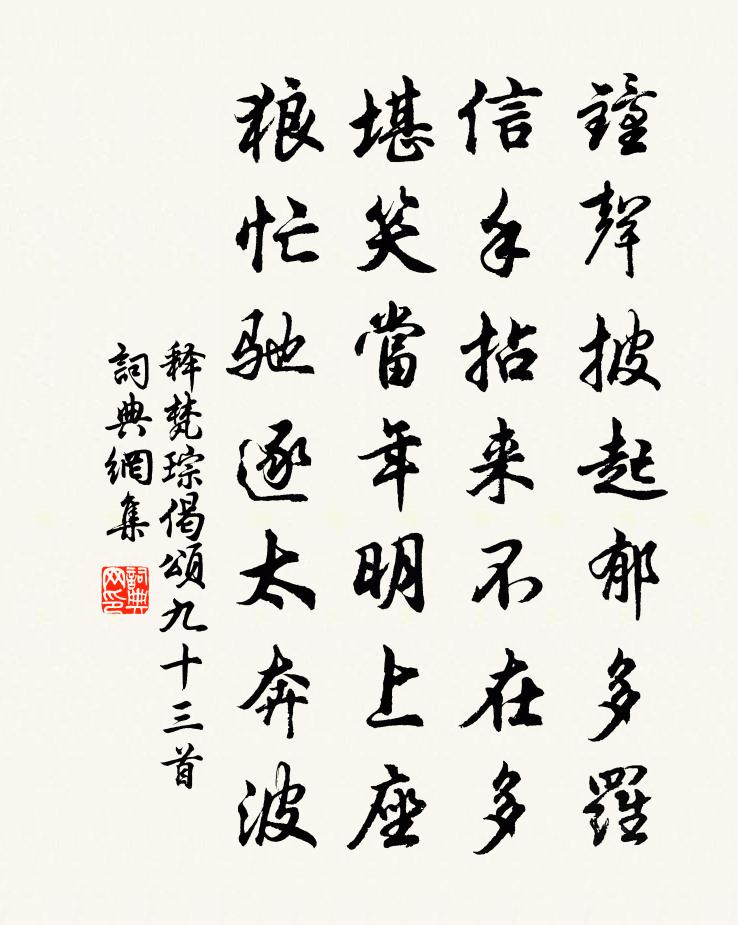 鐘聲披起郁多羅
信手拈来不在多
堪笑當年明上座
狼忙馳逐太奔波
释梵琮偈頌九十三首
詞典網集
詞典網印